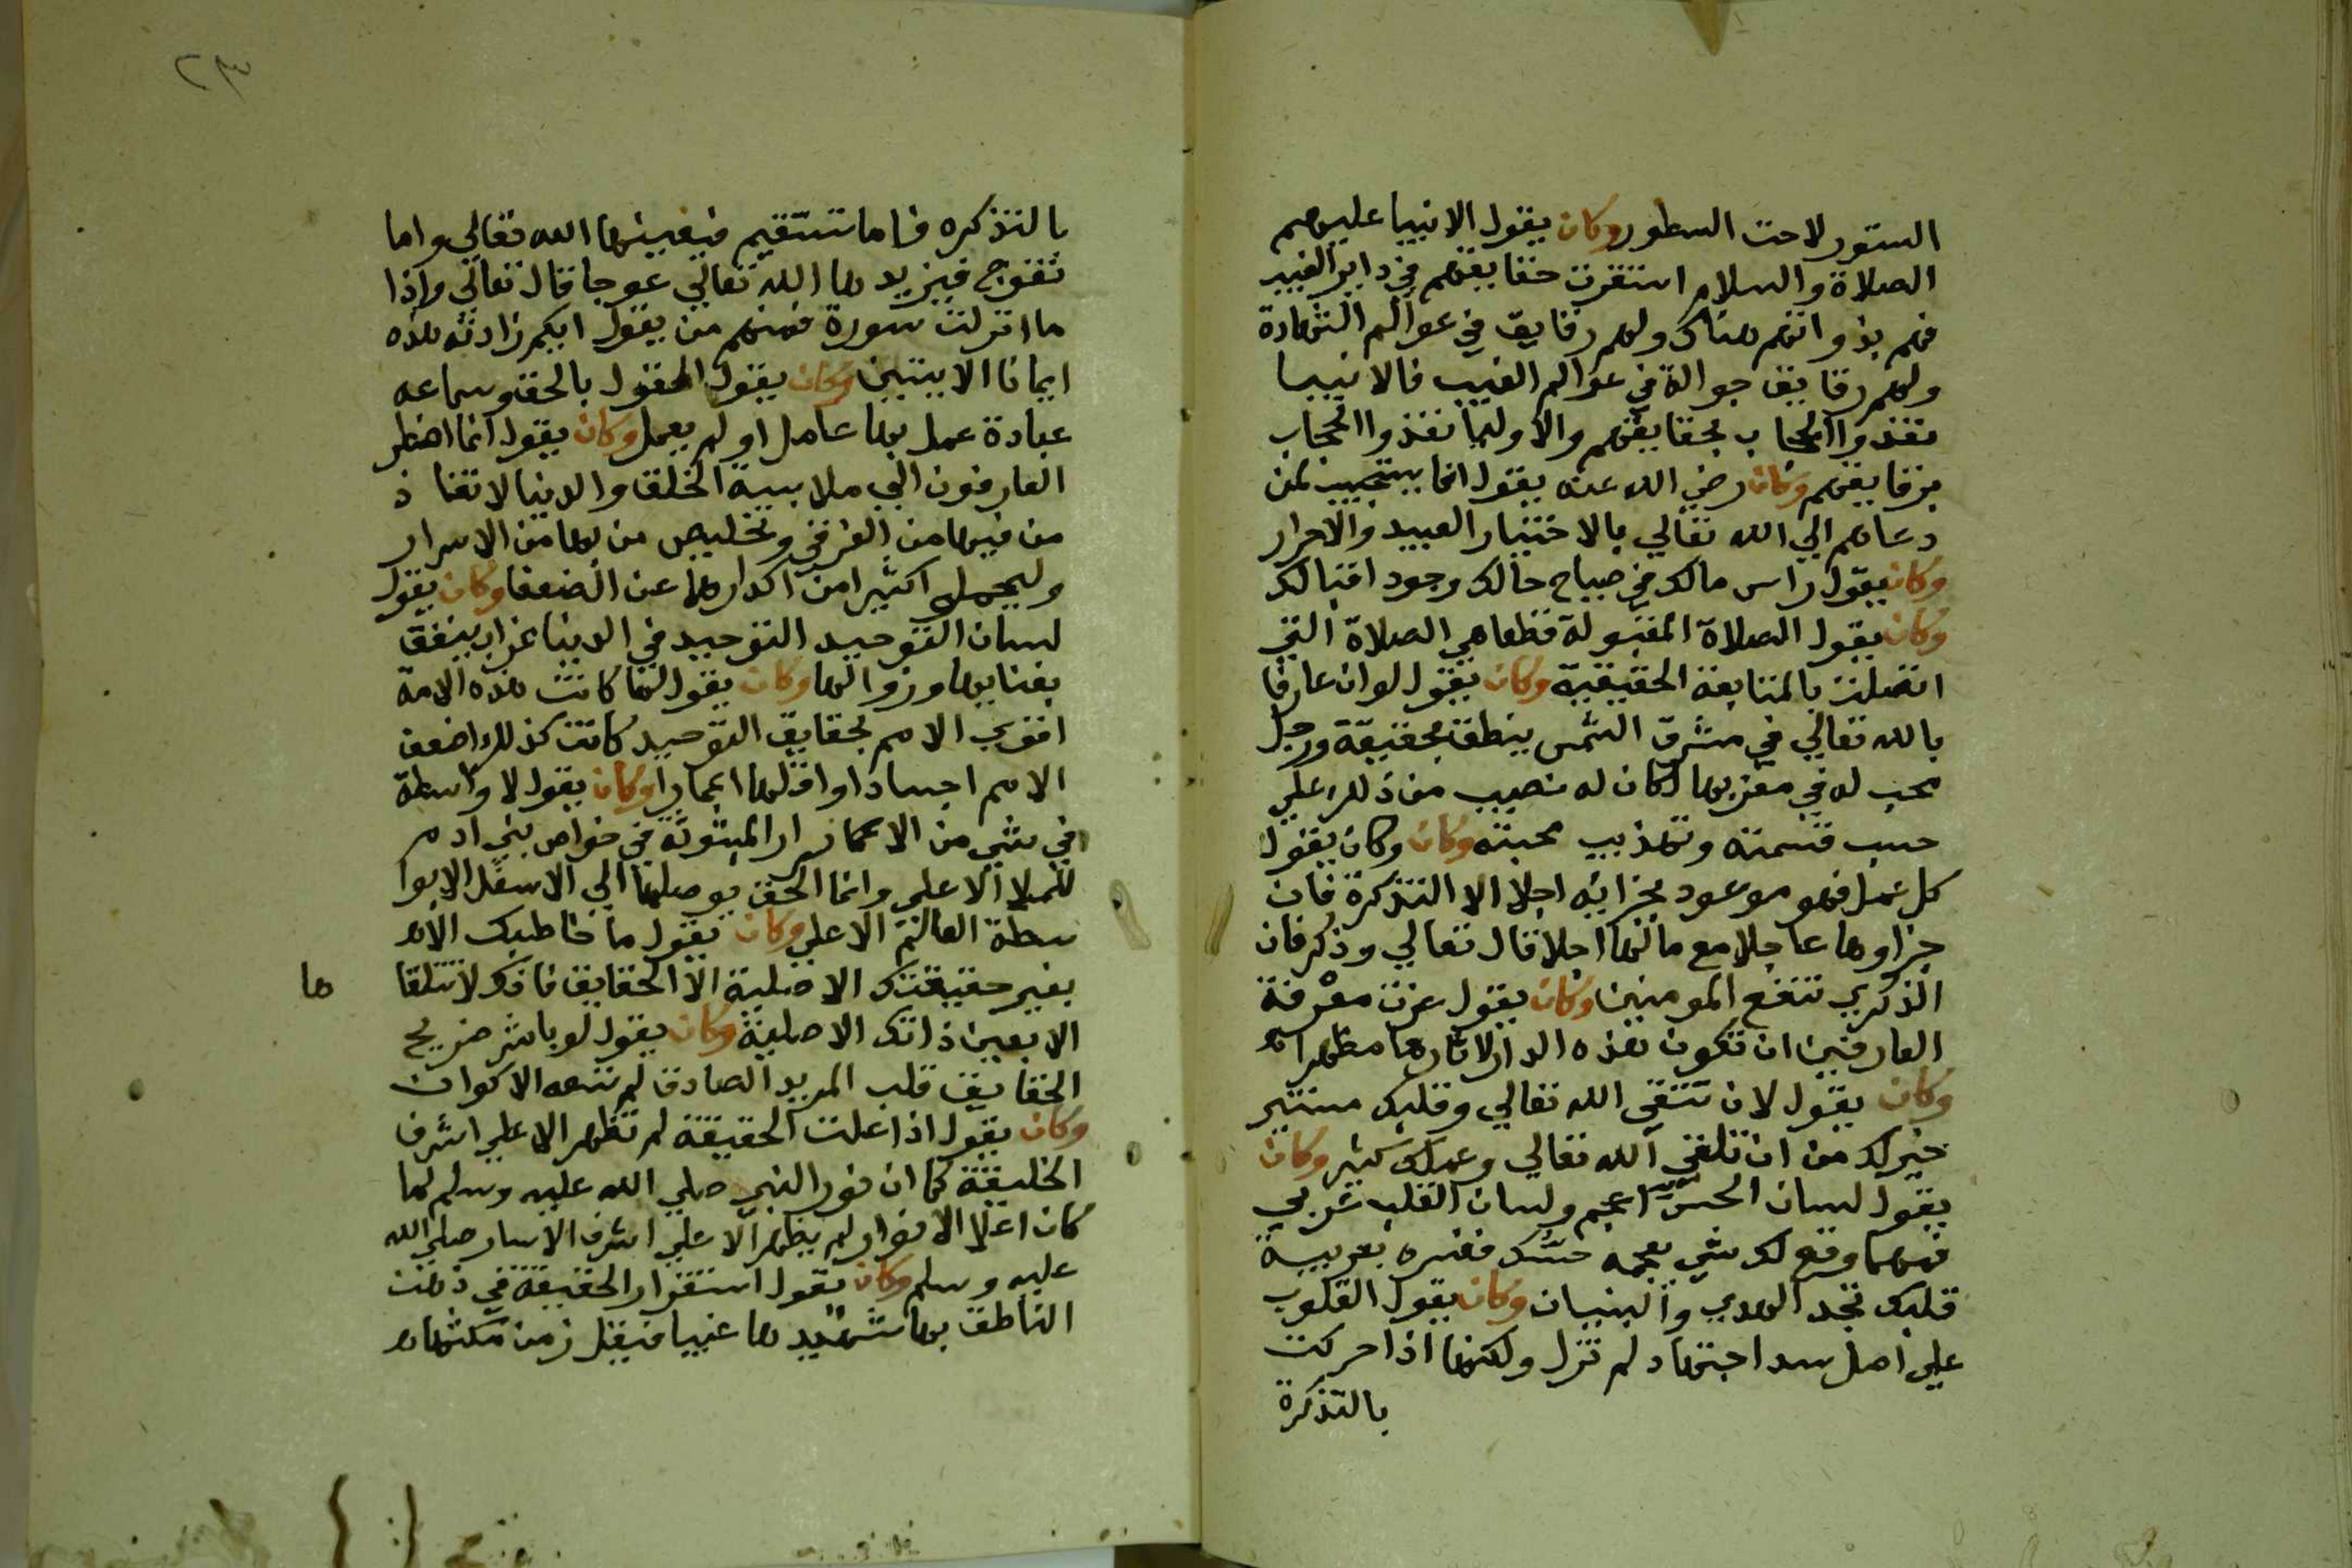 الستور لاحت السطور وكان يقول الانبيا عليهم
الصلاة والسلام استقرت حقايقهم في داير الغيب
فهم بذواتهم هناك ولهم رقايق في عوالم الشهادة
ولهم رقايق جوالة في عوالم الغيب فالانبيا
نفذوا الحجاب بحقايقهم والاوليا نفذوا الحجاب
برقايقهم وكان رضي الله عنه يقول انما يستجيب لمن
دعاهم الي الله تعالي بالاختيار العبيد والاحرار
وكان يقول راس مالك في صباح حالك وجود اقبالك
وكان يقول الصلاة المقبولة قطعا هي الصلاة التي
اتصلت بالمتابعة الحقيقية وكان يقول لو ان عارفا
بالله تعالي في مشرق الشمس ينطق بحقيقة ورجل
محب له في مغربها لكان له نصيب من ذلك علي
حسب قسمته وتهذيب محبته وكان وكان يقول
كل عمل فهو موعود بجزايه اجلا الا التذكرة فان
جزاوها عاجلا مع مالها اجلا قال تعالي وذكر فان
الذكري تنفع المومنين وكان يقول عزت معرفة
العارفين ان تكون هذه الدار لاثارها مظهرا
وكان يقول لان تتقي الله تعالي وقلبك مستنير
خير لك من ان تلقي الله تعالي وعملك كثير وكان
يقول لسان الحس اعجم ولسان القلب عربي
فمهما وقع لك شي بعجمه حسك ففسره بعربية
قلبك تجد الهدي والبنيان وكان يقول القلوب
علي اصل سد اجتهاد لم تزل ولكنها اذا حركت
بالتذكرة
٢٣
بالتذكره فاما تستقيم فيغيثها الله تعالي واما
تعوج فيزيدها الله تعالي عوجا قال تعالي واذا
ما انزلت سورة فمنهم من يقول ايكم زادته هذه
ايمانا الايتين وكان يقول القول بالحق وسماعه
عبادة عمل بها عامل او لم يعمل وكان يقول انما اضطر
العارفون الي ملابسة الخلق والدنيا لانقاذ
من فيها من الغرقي وتخليص من بها من الاسرار
وليحمل اكثيرا من اكدارها عن الضعفا وكان يقول
لسان التوحيد التوحيد في الدنيا غراب ينعق
بفنايها وزوالها وكان يقول لما كانت هذه الامة
اقوي الامم بحقايق التوحيد كانت كذلك اضعف
الامم اجسادا واقلها اعمارا وكان يقول لا واسطة
في شي من الاعمار المبثوثة في خواص بني ادم
للملا الاعلي وانما الحق يوصلها الي الاسفل الا بوا
سطة العالم الاعلي وكان يقول ما خاطبك الله
بغير حقيقتك الاصلية الا الحقايق فانك لا تتلقا ها
الا بعين ذاتك الاصلية وكان يقول لو باشر ضريح
الحقايق قلب المريد الصادق لم تسعه الاكوان
وكان يقول اذا علت الحقيقة لم تظهر الا علي اشرف
الخليقة كما ان نور النبي صلي الله عليه وسلم لما
كان اعلا الانوار لم يظهر الا علي اشرف الاسار صلي الله
عليه وسلم وكان يقول استقرار الحقيقة في ذهن
الناطق بها شهيد ها غيبا فيقل زمن مكثها